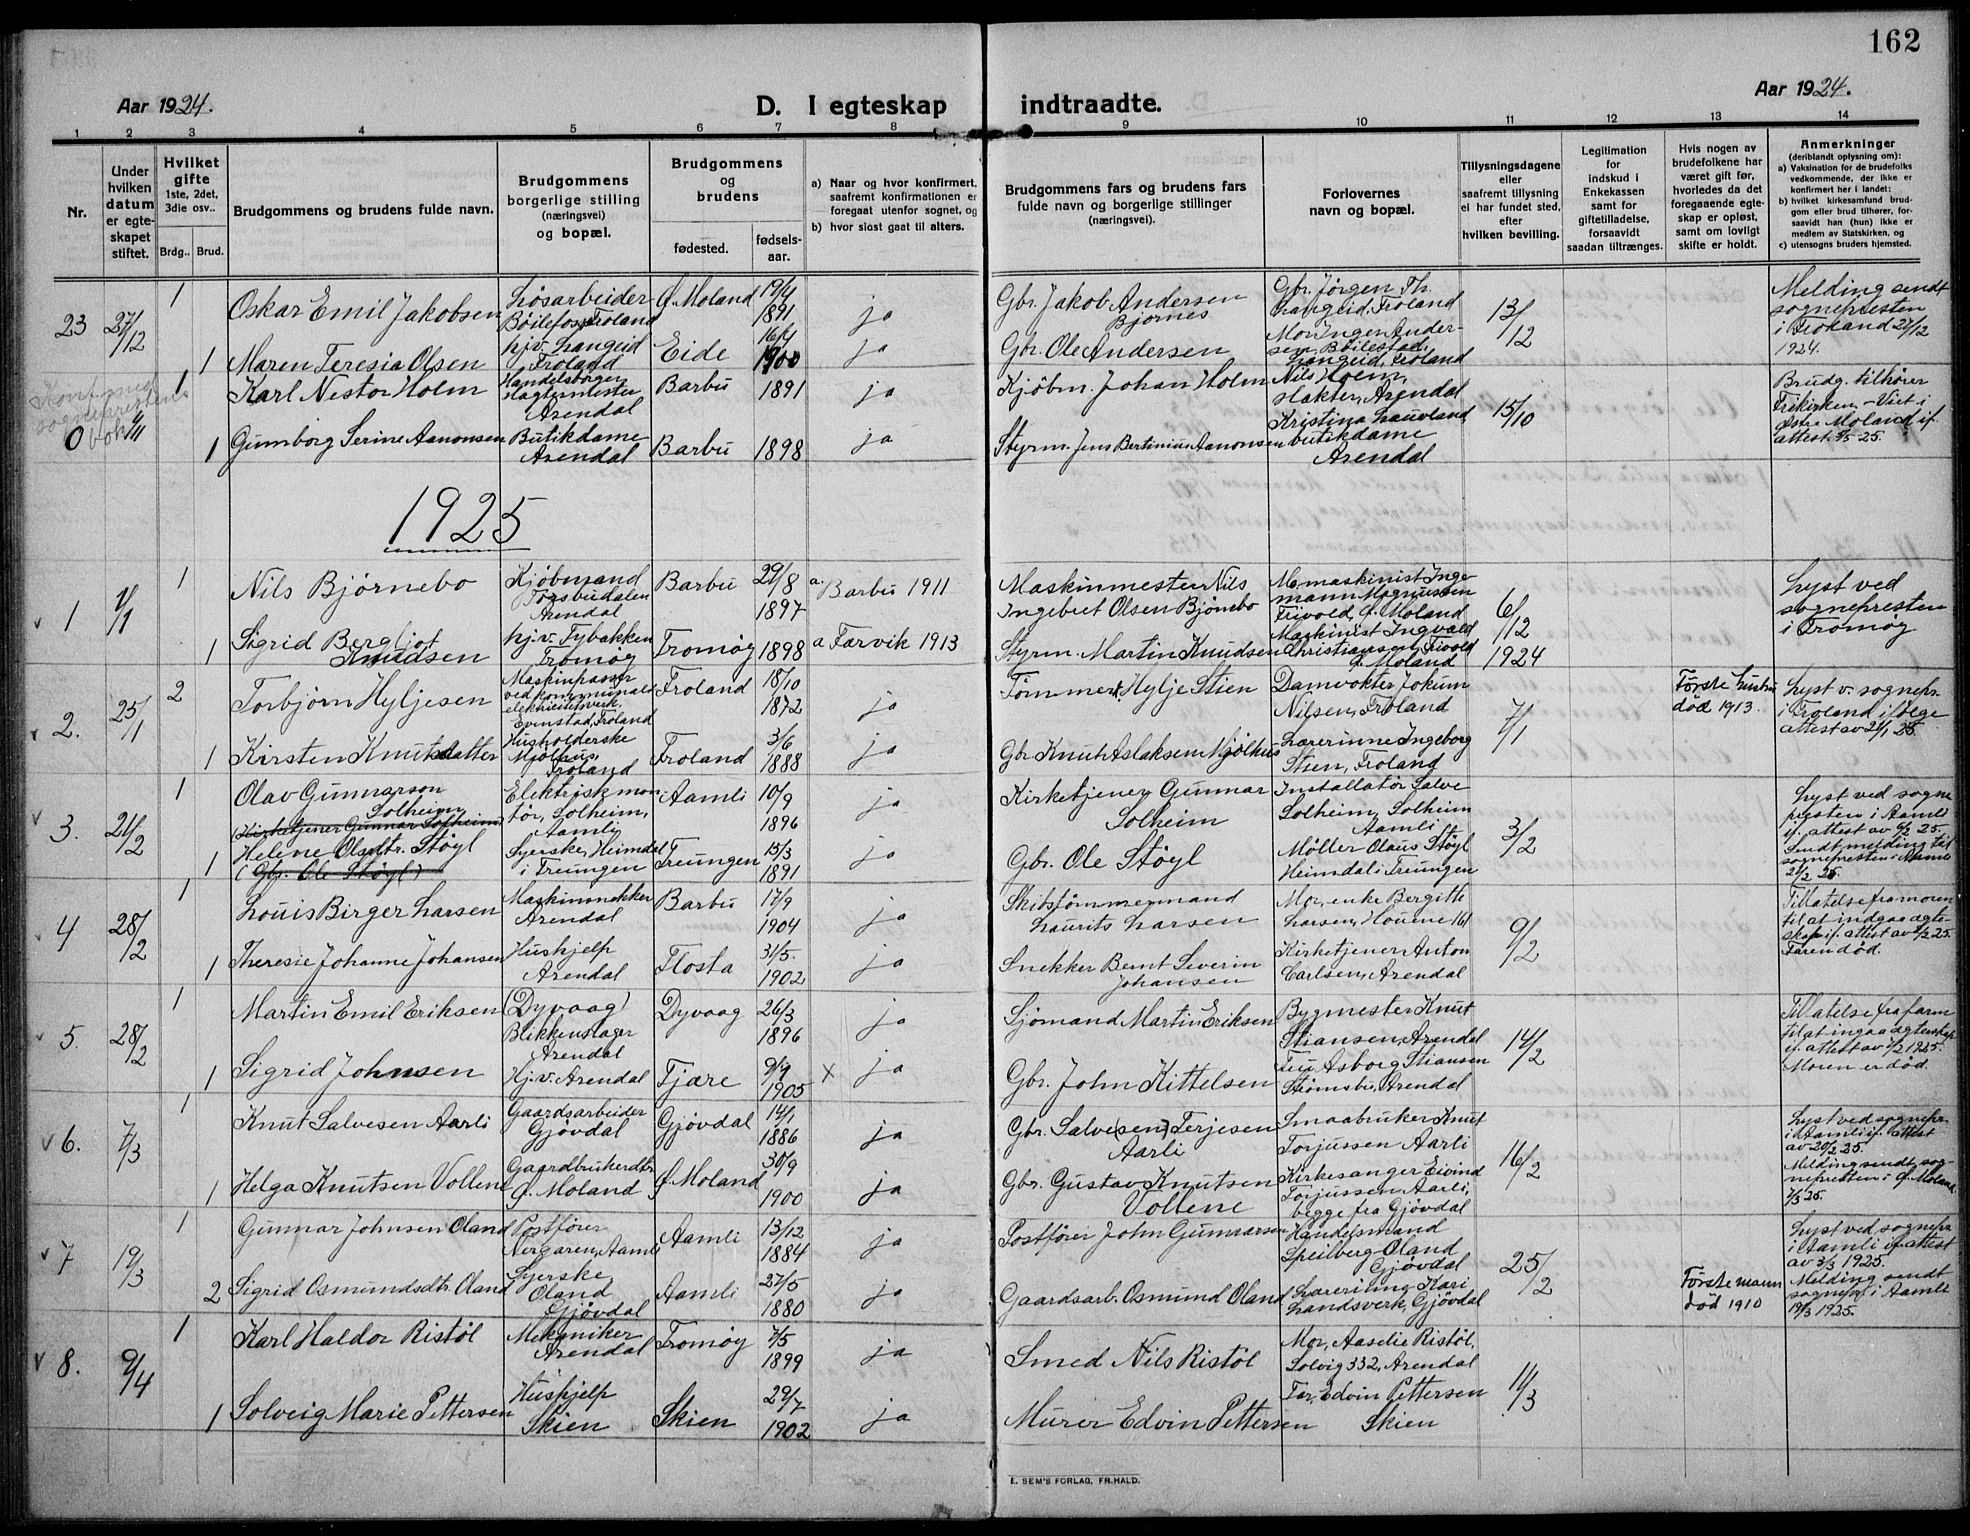 162
Aar 1924.
D. I egteskap indtraadte.
Aar 1924.
1 2 3 4 5 6 7 8 9 10 11 12 13 14
Nr.
Under hvilken datum er egteskapet stiftet.
Hvilket gifte
1ste, 2det, 3die osv..
Brdg.. Brud.
Brudgommens og brudens fulde navn.
Brudgommens borgerlige stilling (næringsvei) og bopæl.
Brudgommens og brudens
fødested.
fødselsaar.
a) Naar og hvor konfirmert, saafremt konfirmationen er foregaat utenfor sognet, og
b) hvor sidst gaat til alters.
Brudgommens fars og brudens fars fulde navn og borgerlige stillinger (næringsvei).
Forlovernes navn og bopæl.
Tillysningsdagene eller saafremt tillysning ei har fundet sted, efter hvilken bevilling.
Legitimation for indskud i Enkekassen samt for giftetilladelse, forsaavidt saadan tiltrænges.
Hvis nogen av brudefolkene har været gift før, hvorledes da det foregaaende egteskap er opløst, samt om lovligt skifte er holdt.
Anmerkninger
(deriblandt oplysning om):
a) Vaksination for de brudefolks vedkommende, der ikke er konfirmert her i landet:
b) hvilket kirkesamfund brudgom eller brud tilhører, forsaavidt han (hun) ikke er medlem av Statskirken, og
c) utensogns bruders hjemsted.
23 27/12 1 Oskar Emil Jakobsen Løsarbeider Bøilefoss, Froland Ø. Moland 19/4 1891 ja Gbr. Jakob Andersen Bjornes Gbr. Jörgen Th. Langeid, Froland 13/12 Melding sendt sognepresten i Froland 27/12 1924.
1 Maren Teresia Olsen hjv. Langeid Froland Eide 16/4 1900 ja Gbr. Ole Andersen Mor Ingen Andersen, Bøilestad, Langeid, Froland
0 1 Karl Nestor Holm Handelsborger, slagtermester Arendal Barbu 1891 ja Kjøbm. Johan Holm Nils Holm, slakter, Arendal 15/10 Brudg. tilhører Frikirken. - Viet i Østre Moland if. attest. 4/5 25.
1 Gunnborg Serine Aanonsen Butikdame Arendal Barbu 1898 ja Styrm. Jens Bertinius Aanonsen Kristina Lauvland, butikdame Arendal
1925
v 1 1/1 1 Nils Bjørnebo Kjøbmand Torsbudalen Arendal Barbu 29/8 1897 a. Barbu 1911 Maskinmester Nils Ingebret Olsen Bjørnebo Maskinist Ingemann Magnussen Feivold, Ø. Moland 6/12 1924 Lyst ved sognepresten i Tromøy
1 Sigrid Bergljot Knudsen hj.v. Tybakken Tromøy Tromøy 1898 a Færvik 1913 Styrm. Martin Knudsen Maskinist Ingvald Christiansen, Feivold Ø. Moland
v 2. 25/1 2 Torbjørn Hyljesen Maskinpasser ved kommunale elektricitetsverk, Evenstad, Froland Froland 18/10 1872 ja Tømmerk. Hylje Stien Damvokter Jokum Nilsen, Froland 7/1 Første hustru död 1913. Lyst v. sognepr. i Froland ifölge attest av 21/1 25.
1 Kirsten Knutsdatter Husholderske Mjølhus, Froland Froland 3/6 1888 ja Gbr. Knut Aslaksen Mjølhus Lærerinne Ingeborg Stien, Froland
v 3. 21/2 1 Olav Gunnarson Solheim (Kirketjener Gunnar Solheim) Elektrisk montør, Solheim, Aamli Aamli 10/9 1896 ja Kirketjener Gunnar Solheim Installatör Salve Solheim, Solheim Aamli 3/2 Lyst ved sognepresten i Aamli if. attest av 6/2 25. Sendt melding til sognepresten i Aamli 21/2 25.
1 Helene Olsdtr. Støyl (Gbr. Ole Støyl) Syerske, Heimdal i Treungen Treungen 15/3 1891 ja Gbr. Ole Støyl Møller Olaus Støyl Heimdal i Treungen
4 28/2 1 Louis Birger Larsen Maskinsnekker Arendal Barbu 17/9 1904 ja Skibstømmermand Laurits Larsen Mor, enke Bergitte Larsen, Houene 161 9/2 Tillatelse fra moren til at indgaa ægteskap if. attest av 2/2 25. Faren død.
1 Theresie Johanne Johansen Hushjelp Arendal Flosta 31/5. 1902 ja Snekker Bernt Severin Johansen Kirketjener Anton Carlsen, Arendal
v 5. 28/2 1 Martin Emil Eriksen (Dyvaag) Blikkenslager Arendal Dyvaag 26/3 1896 ja Sjömand Martin Eriksen Bygmester Knut Stiansen, Arendal 14/2 Tillatelse fra faren til at ingaa ægteskap if. attest av 7/2 1925. Moren er død.
1 Sigrid Johnsen Hj.v. Arendal Tjære 9/9 1905 x ja Gbr. John Kittelsen Fru Asborg Stiansen Strømsbu, Arendal
v 6. 7/3 1 Knut Salvesen Aarli Gaardsarbeider Gjövdal Gjövdal 14/1 1886 ja Gbr. Salve(sen) Terjesen Aarli Smaabruker Knut Torjussen Aarli 16/2 Lyst ved sognepr. i Aamli if. attest av 20/2 25. Melding sendt sognepresten i Ø. Moland 7/3 25.
1 Helga Knutsen Vollene Gaardbrukerdtr. Ø. Moland Ø. Moland 30/9 1900 ja Gbr. Gustav Knutsen Vollene Kirkesanger Eivind Torjussen Aarli, begge fra Gjövdal
v 7 19/3 1 Gunnar Johnsen Oland Postfører Nergaren, Aamli Aamli 13/12 1884 ja Postfører John Gunnarsen Handelsmand Speilberg Oland Gjövdal 25/2 Første mann död 1910 Lyst ved sognepr. i Aamli if. attest av 3/3 1925. Melding sendt sognepr. i Aamli 19/3 1925.
2 Sigrid Osmundsdtr. Oland Syerske Oland Gjövdal Aamli 27/5 1880 ja Gaardsarb. Osmund Oland Lærerinne Kari Landsverk, Gjövdal
v 8. 9/4 1 Karl Haldor Ristöl Mekaniker Arendal Tromøy 7/5 1899 ja Smed Nils Ristöl Mor, Aaselie Ristöl, Solvig 332, Arendal 11/3
1 Solveig Marie Pettersen Hushjelp Skien Skien 29/7 1902 ja Murer Edvin Pettersen Far, Edvin Pettersen Skien
E. SEM'S FORLAG, FR.HALD.